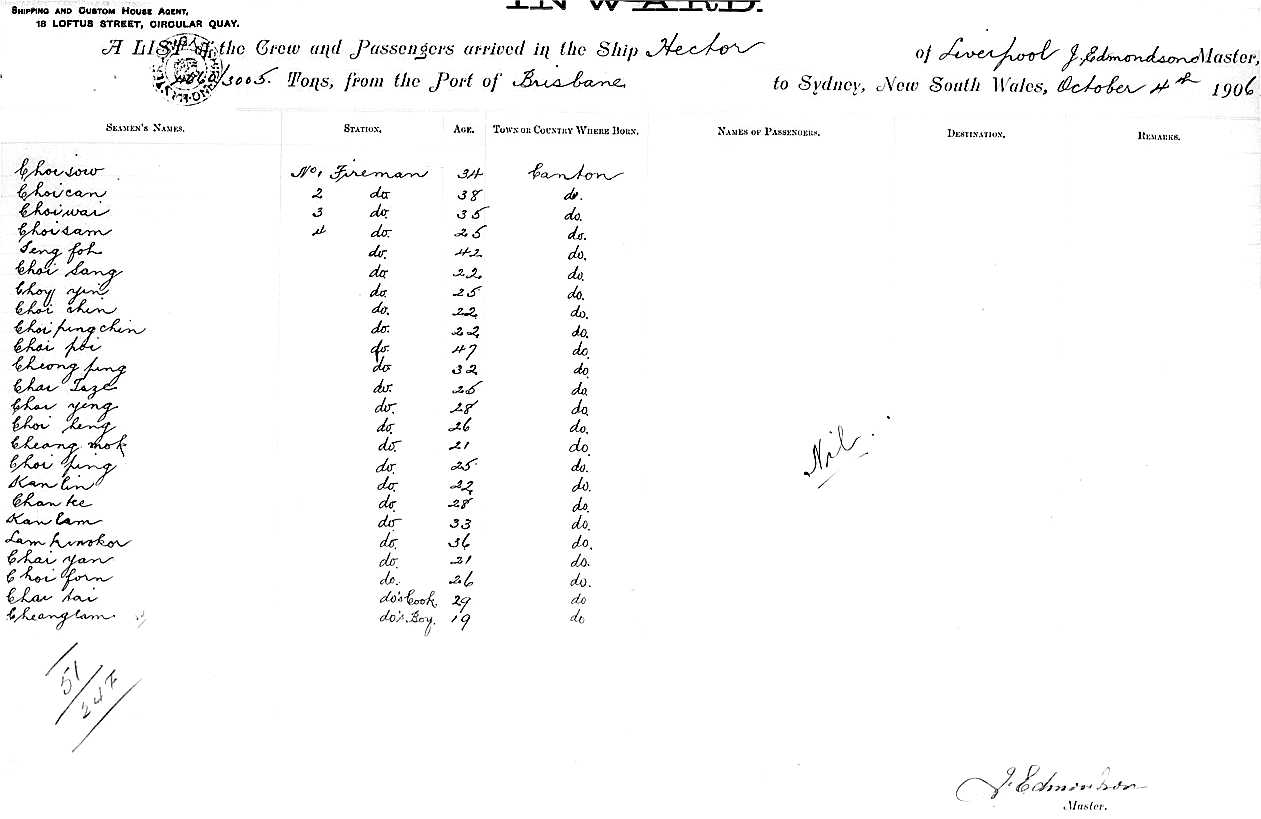 SHIPPING AND CUSTOM HOUSE AGENT,
18 LOFTUS STREET, CIRCULAR QUAY.
INWARD.
A LIST of the Crew and Passengers arrived in the Ship Hector of Liverpool J. Edmondson Master,
4660/3005. Tons, from the Port of Brisbane to Sydney, New South Wales, October 4th 1906
SEAMEN'S NAMES. STATION. AGE. TOWN OR COUNTRY WHERE BORN. NAMES OF PASSENGERS. DESTINATION. REMARKS.
Choi sow No 1 Fireman 34 Canton
Choi can 2 do 38 do.
Choi wai 3 do. 35 do.
Choi sam 4 do. 25 do.
Teng foh do. 42 do.
Choi Sang do 22 do.
Choy yin do. 25 do.
Choi chin do. 22 do.
Choi ping chin do. 22 do.
Choi poi do. 47 do.
Cheong ping do 32 do
Choi Taze do. 25 do
Choi yeng do. 28 do
Choi heng do. 26 do.
Cheang mok do. 21 do
Choi ping do. 25 do.
Kan lin do. 22 do.
Chan kee do. 28 do.
Kan Lam do 33 do.
Lam do. 36 do.
Chai yan do. 21 do.
Choi forn do. 26 do.
Choi sai do's Cook. 29 do
Cheang lam do's Boy. 19 do
Nil.
51
247
J. Edmondson
Master.